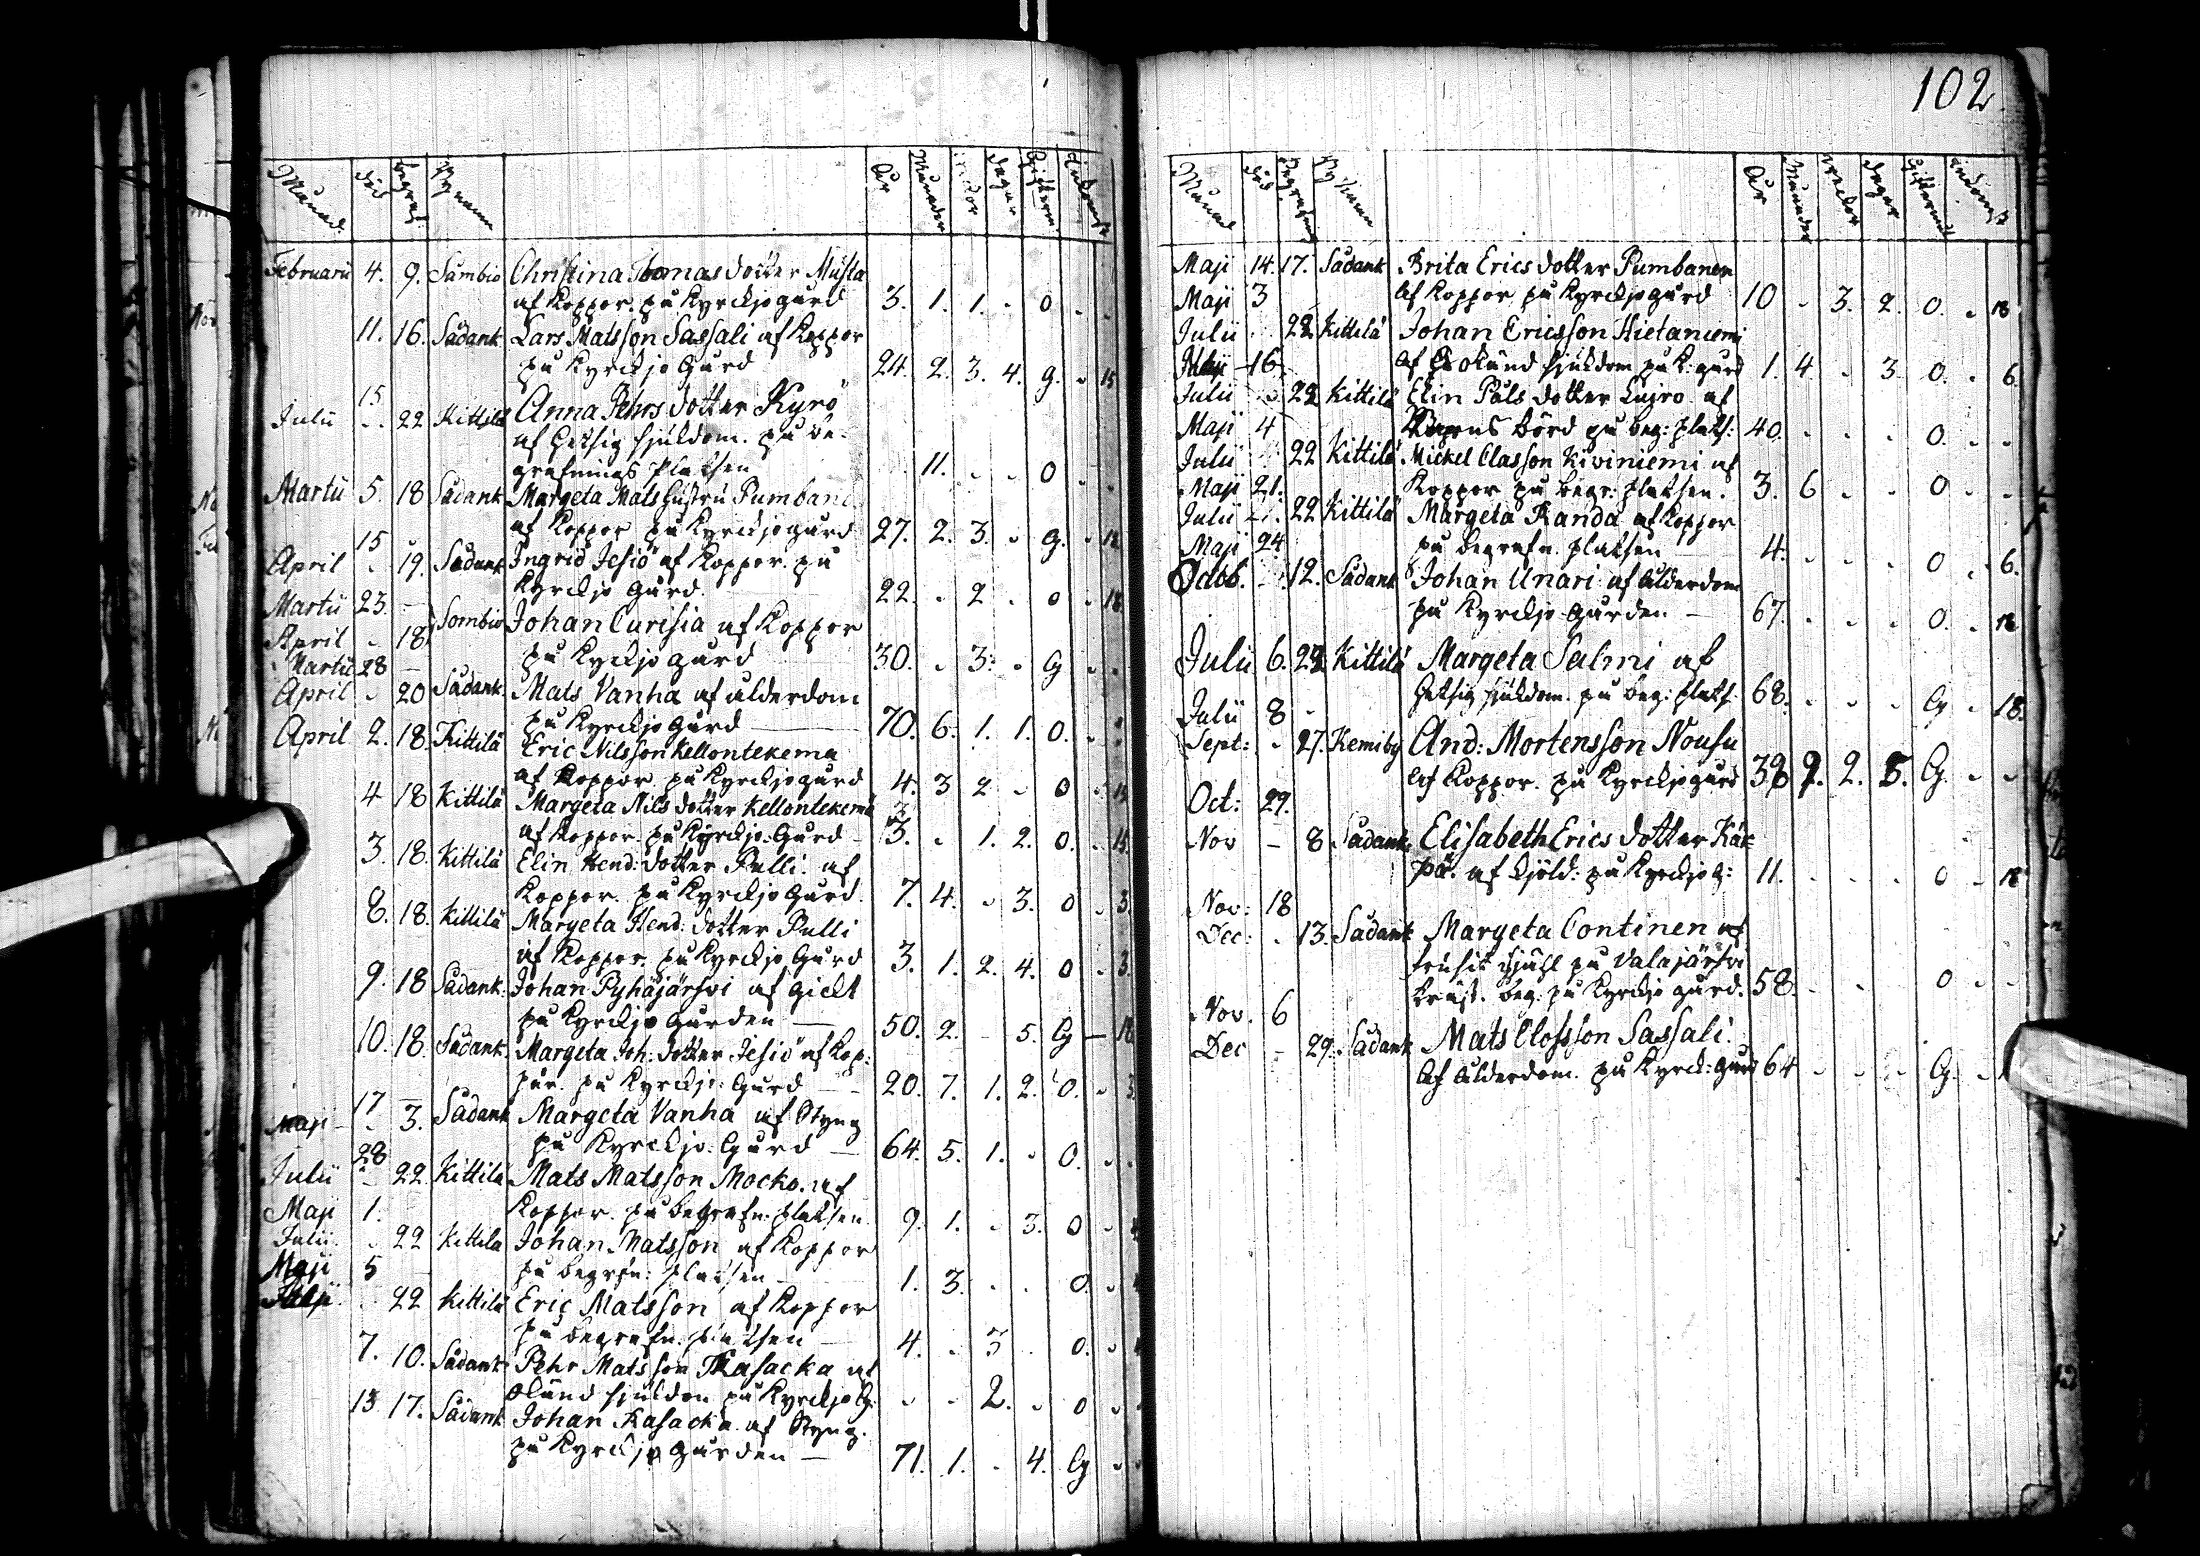 102.
Månad död begraf: Bynamn År Månader veckor dagar Gifterm Inkomst
Februarii 4. 9. Sombio Christina Thomas dotter Musta
af Koppor. på Kyrckjogård 3. 1. 1. - 0
11. 16. Sådank Lars Matsson Sassali af Koppor
på Kyrckjo Gård 24. 2. 3. 4. g. - 15
15
Julii - 22 Kittilä Anna Pehrs dotter Kyrö
af Hetsig sjukdom. på be-
grafninas platsen 11. - - 0
Martii 5. 18 Sådank Margeta Mats hustru Pumbane
af Koppor på Kyrckjogård 27. 2. 3. - g. - 18
15
April - 19. Sådank Ingrid Jesiö af Koppor. på
Kyrckjo Gård. 22. - 2 - 0 - 18
Martii 23. -
April - 18. Sombio Johan Curisia af Koppor
på Kyrckjo gård 30. - 3. - G
Martii 28 -
April - 20 Sådank Mats Vanha af ålderdom
på Kyrckjo Gård 70. 6. 1. 1. 0.
April 2. 18. Kittilä Eric Nilsson Kellontekema
af Koppor på Kyrckjogård 4. 3 2 - 0
4 18 Kittilä Margeta Nils dotter Kellontekemä
af Koppor. på Kyrckjo Gård 3. - 1. 2. 0. - 15
3. 18. Kittilä Elin Hend: dotter Pulli. af
Koppor. på Kyrckjo Gård. 7. 4. - 3. 0 - 3.
8. 18. Kittilä Margeta Hend: dotter Pulli
af Koppor. på Kyrckjo Gård 3. 1. 2. 4. 0 - 3.
9. 18 Sådank: Johan Pyhäjärfvi af Gickt
på Kyrckjo Gården 50. 2. - 5. G - 18
10. 18. Sådank Margeta Joh: dotter Jesiö af Kop:
por. på Kyrckjo: Gård 20. 7. 1. 2. 0. - 3
17 -
Maji - 3. Sådank Margeta Vanha af Styng
på Kyrckjo: Gård 64. 5. 1. - 0.
28
Julii - 22 Kittilä Mats Matsson Mocko. af
Koppor. på begrafn: platsen 9. 1. - 3. 0
Maji 1.
Julii - 22 Kittilä Johan Matsson af Koppor
på begrfn: platsen 1. 3. - - 0.
Maji 5 -
Julii - 22 Kittilä Eric Matsson af Koppor
på begrafn: platsen 4. - 3 - 0.
7. 10. Sådank Pehr Matsson Kasacka af
okänd sjukdom på Kyrckjo G. - - 2. - 0
13 17. Sådank Johan Kasacka af Styng.
på Kyrckjo gården 71. 1. - 4. G
Månad död begrafning By Namn År Månader veckor dagar Gifterm: Inkomst
Maji 14. 17. Sådank Brita Erics dotter Pumbanen
af Koppor på Kyrckjogård 10 - 3. 2. 0. - 18
Maji 3
Julii - 22 Kittilä Johan Ericsson Hietaniemi
af okänd sjukdom på K: gård 1. 4 - 3. 0. - 6.
Maji 16
Julii - 22 Kittilä Elin Påls dotter Lujro af
Barns börd på beg: plats: 40. - - - 0. - -
Maji 4
Julii - 22 Kittilä Mickel Classon Kiviniemi af
Koppor på begr: platsen. 3. 6 - - 0 - -
Maji 21.
Julii - 22 Kittilä Margeta Randa af Koppor
på begrafn. platsen 4. - - - 0 - 6.
Maji 24
Octob. - 12. Sådank Johan Unari af ålderdom
på Kyrckjo-gården 67. - - - 0. - 18
Julii 6. 22 Kittilä Margeta Salmi af
Hetsig sjukdom. på beg: plats: 68. - - - G - 18.
Julii 8 -
Sept: - 27. Kemiby And: Mortensson Nousu
af Koppor. på Kyrckjogård 38 9. 2. 5. G. - -
Oct: 29.
Nov - 8 Sådank. Elisabeth Erics dotter Käk
pä. af Kjöld: på Kyrckjo g: 11. - - - 0 - 18
Nov: 18
Dec: - 13. Sådank Margeta Continen af
på Valajärfvi
beg. på Kyrckjo gård. 58. - - - 0 - -
Nov. 6
Dec - 29. Sådank Mats Olofsson Sassali.
af ålderdom. på Kyrck: gård 64 - - - G. -